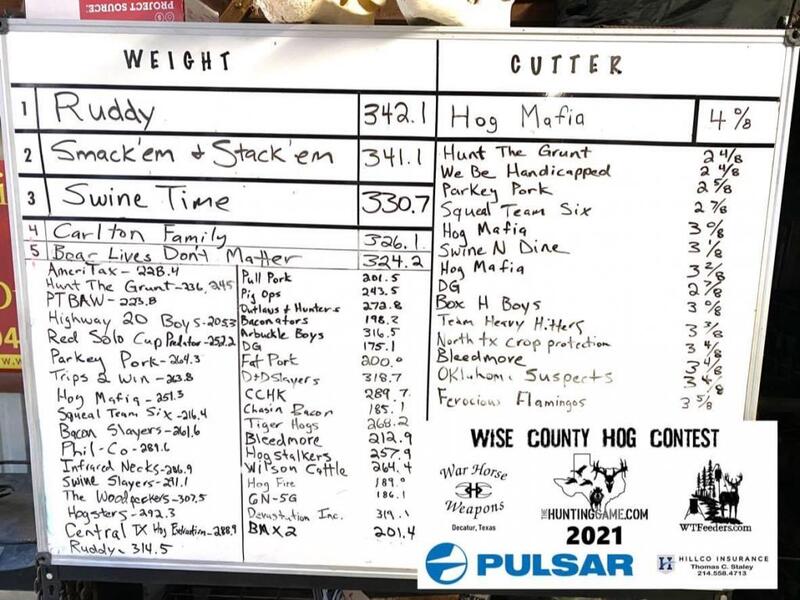 PROJECT SOURCE:
WEIGHT
1 Ruddy 342.1
2 Smack'em & Stack'em 341.1
3 Swine Time 330.7
4 Carlton Family 326.1
5 Boar Lives Don't Matter 324.2
AmeriTax - 228.4
Hunt The Grunt - 236, 245
PT BAW - 223.8
Highway 20 Boys - 205.3
Red Solo Cup Predator - 252.2
Parkey Pork - 264.3
Trips 2 Win - 263.8
Hog Mafia - 251.3
Squeal Team Six - 216.4
Bacon Slayers - 261.6
Phil-Co - 289.6
Infrared Necks - 286.9
Swine Slayers - 291.1
The Woodpeckers - 307.5
Hogsters - 292.3
Central TX Hog Extraction - 288.9
Ruddy - 314.5
Pull Pork 201.5
Pig Ops 243.5
Outlaws & Hunters 272.8
Baconators 198.2
Arbuckle Boys 316.5
DG 175.1
Fat Pork 200.0
D+D Slayers 318.7
CCHK 289.7
Chasin Bacon 185.1
Tiger Hogs 268.2
Bleedmore 212.9
Hog Stalkers 257.9
Wilson Cattle 264.4
Hog Fire 189.0
GN-5G 186.1
Devastation Inc. 319.1
BMX2 201.4
CUTTER
Hog Mafia 4 0/8
Hunt The Grunt 2 4/8
We Be Handicapped 2 4/8
Parkey Pork 2 5/8
Squeal Team Six 2 7/8
Hog Mafia 3 0/8
Swine N Dine 3 1/8
Hog Mafia 3 2/8
DG 2 7/8
Box H Boys 3 0/8
Team Heavy Hitters 3 3/8
North tx crop protection 3 4/8
Bleedmore 3 4/8
Oklahoma Suspects 3 4/8
Ferocious Flamingos 3 5/8
WISE COUNTY HOG CONTEST
War Horse
Weapons
Decatur, Texas
THEHUNTINGGAME.COM
WTFeeders.com
2021
PULSAR
HILLCO INSURANCE
Thomas C. Staley
214.558.4713